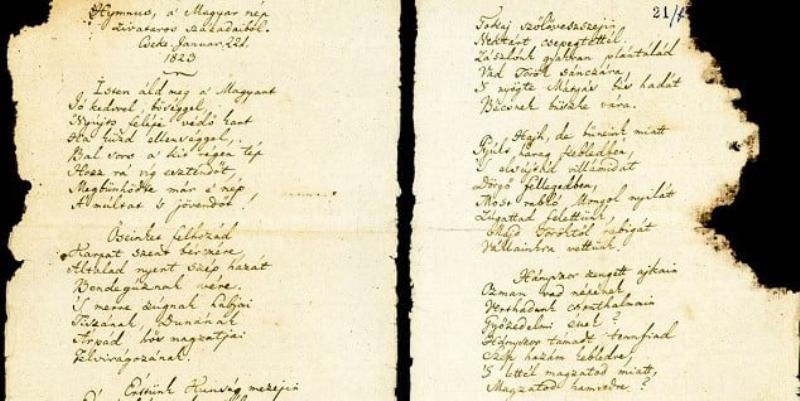 Hymnus, a' Magyar nép
Zivataros századaiból.
Cseke, Januar. 22d.
1823
Isten áld meg a' Magyart
Jó kedvvel, bőséggel,
Nyújts feléje védő kart
Ha küzd ellenséggel,
Bal sors a' kit régen tép
Hozz rá víg esztendőt,
Megbünhödte már e' nép
A' múltat 's jövendőt!
Őseinket felhozád
Kárpát szent bérczére,
Általad nyert szép hazát
Bendegúznak vére.
'S merre zúgnak habjai
Tiszának, Dunának
Árpád' hős magzatjai
Felvirágozának.
Értünk Kunság' mezején
21/
Tokaj szőlővesszein
Nektárt csepegtettél.
Zászlónk gyakran plántálád
Vad Török sánczára,
'S nyögte Mátyás' bús hadát
Bécsnek büszke vára.
Hajh, de bűneink miatt
Gyúlt harag kebledben,
'S elsújtád villámidat
Dörgő fellegedben,
Most rabló Mongol nyilát
Zúgattad felettünk,
Majd Töröktől rabigát
Vállainkra vettünk.
Hányszor zengett ajkain
Ozman vad népének
Vert hadunk csonthalmain
Győzedelmi ének?
Hányszor támadt tennfiad
Szép hazám kebledre,
'S lettél magzatod miatt,
Magzatod hamvvedre?